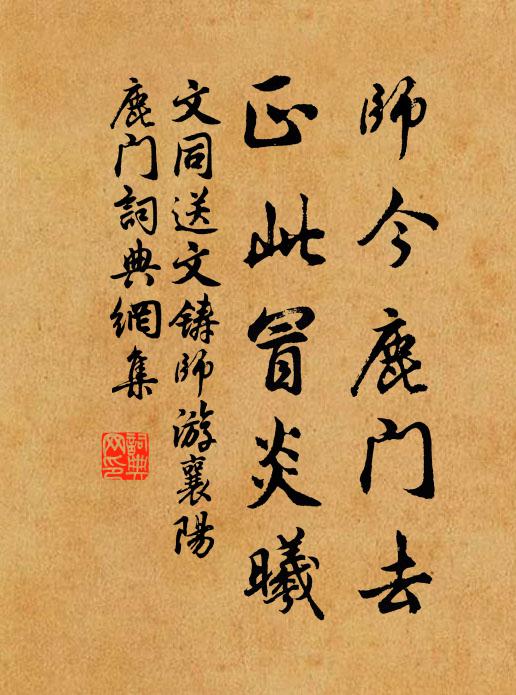 師今鹿门去
正此冒炎曦
文同送文鑄師游襄陽
鹿门詞典網集
詞典
网印